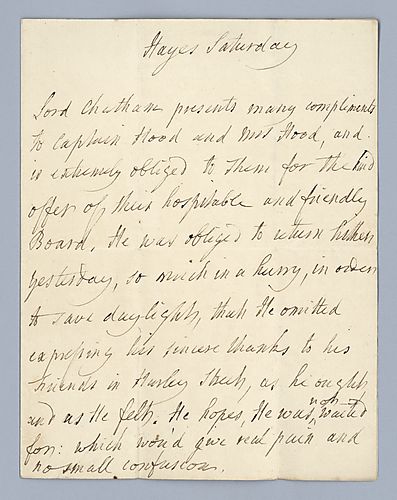 Hayes Saturday
Lord Chatham presents many compliments
to Captain Hood and Mrs Hood, and
is extremely obliged to them for the kind
offer of their hospitable and friendly
Board. He was obliged to return hither
yesterday, so much in a hurry, in order
to save daylight, that He omitted
expressing his sincere thanks to his
friends in Harley Street, as he ought
and as He felt. He hopes, He was not waited
for: which wou'd give real pain and
no small confusion.